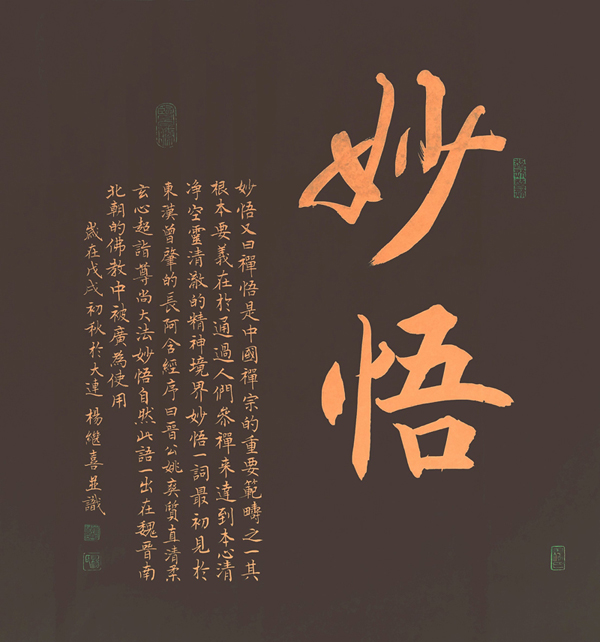 妙悟
妙悟又曰禪悟是中國禪宗的重要範疇之一其
根本要義在於通過人們參禪來達到本心清
净空靈清澈的精神境界妙悟一詞最初見於
東漢曾肇的長阿含經序曰晉公姚爽質直清柔
玄心超詣尊尚大法妙悟自然此語一出在魏晉南
北朝的佛教中被廣為使用
歲在戊戌初秋於大連楊繼喜並識